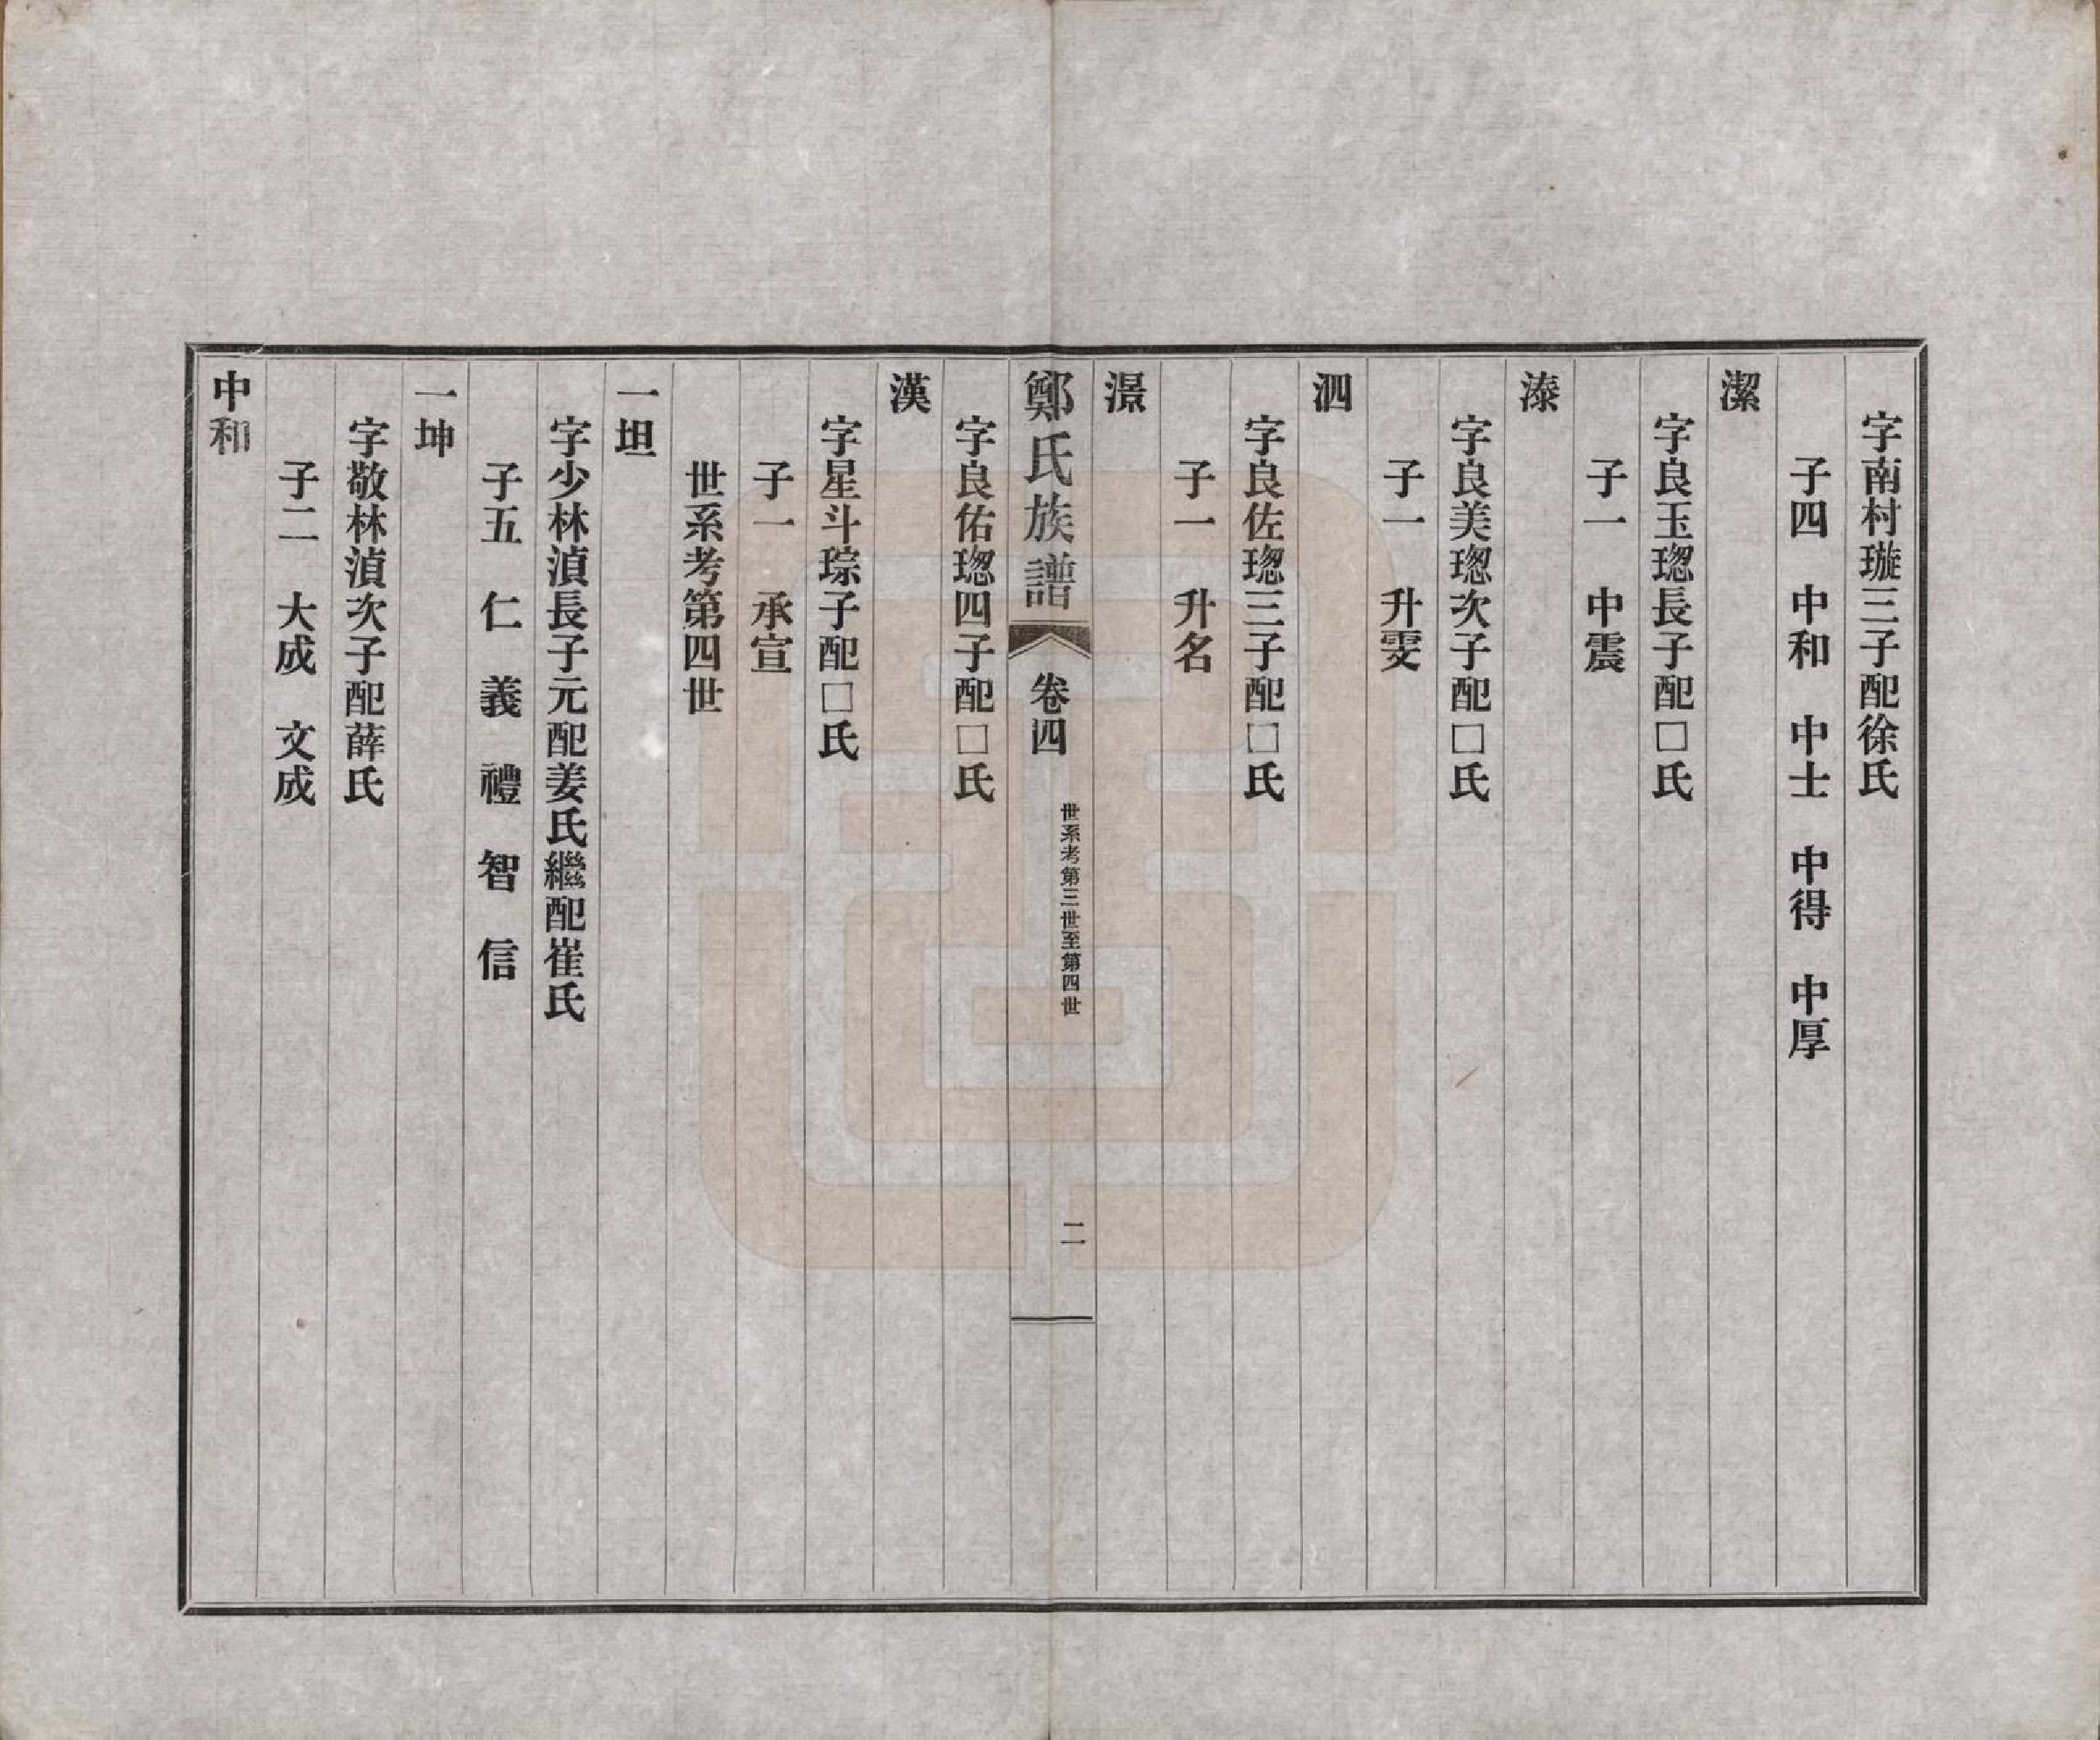 字南村璇三子配徐氏
子四　中和　中士　中得　中厚
潔
字良玉璁長子配□氏
子一　中震
溙
字良美璁次子配□氏
子一　升雯
泗
字良佐璁三子配□氏
子一　升名
澋
鄭氏族譜　卷四　世系考第三世至第四世　二
字良佑璁四子配□氏
漢
字星斗琮子配□氏
子一　承宣
世系考第四世
一坦
字少林湞長子元配姜氏繼配崔氏
子五　仁　義　禮　智　信
一坤
字敬林湞次子配薛氏
子二　大成　文成
中和